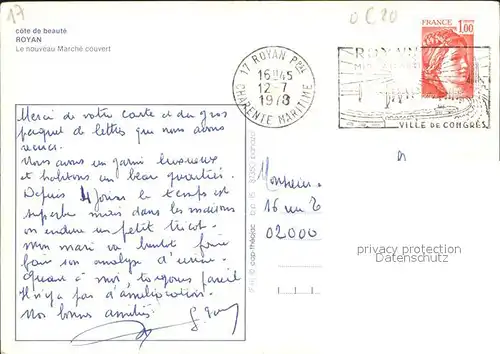 17
0 C 20
côte de beauté
ROYAN
Le nouveau Marché couvert
FRANCE
1,00
17 ROYAN PPAL
16H45
12-7
1978
CHARENTE MARITIME
ROYAN
VILLE DE CONGRÈS
Merci de votre carte et du gros
paquet de lettres que nous avons
reçues.
Nous avons un garni luxueux
et habitons un beau quartier.
Depuis 4 jours le temps est
superbe mais dans les maisons
on endure un petit tricot.
Mon mari va bientôt faire
faire son analyse d'urine.
Quant à moi, toujours pareil
Il n'y a pas d'amélioration.
Nos bonnes amitiés
Monsieur
16 rue
02000
privacy protection
Datenschutz